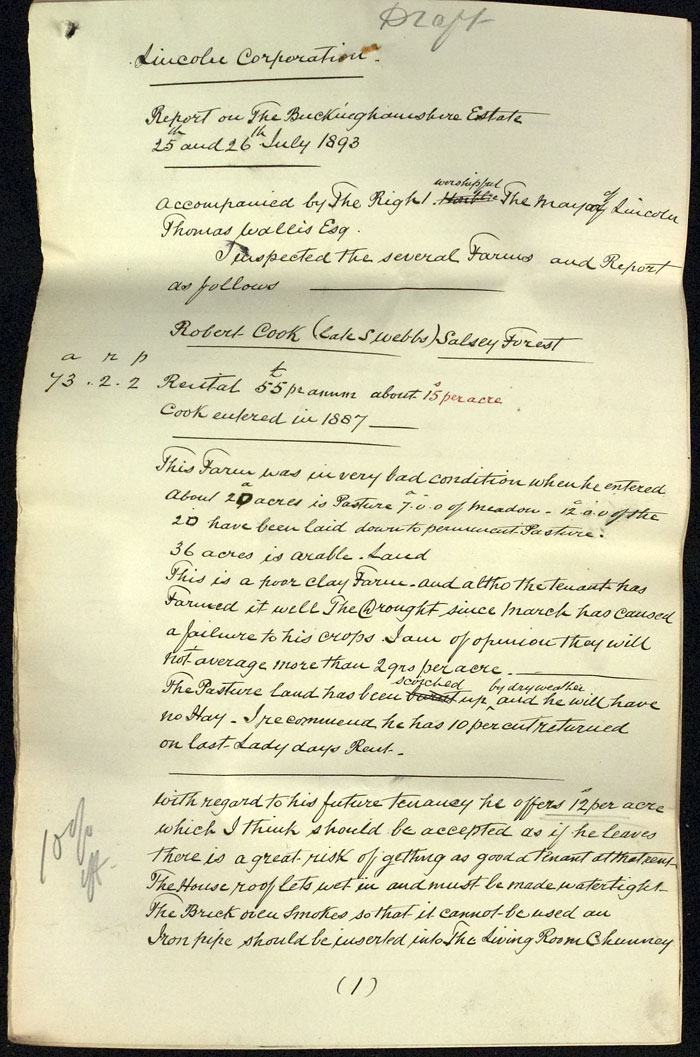 Draft
Lincoln Corporation.
Report on The Buckinghamshire Estate
25th and 26th July 1893
accompanied by The Right worshipful The Mayor of Lincoln
Thomas Wallis Esq.
I inspected the several Farms and Report
as follows
Robert Cook (late S Webbs) Salsey Forest
a r p
73 . 2 . 2 Rental £55 pr anum about 15s per acre
Cook entered in 1887
This Farm was in very bad condition when he entered
About 20a acres is Pasture 7a.0.0 of meadow - 12a.0.0 of the
20 have been laid down to permanent Pasture.
36 acres is arable Land
This is a poor clay Farm and altho the tenant has
Farmed it well The Drought since March has caused
a failure to his crops I am of opinion they will
not average more than 2 qrs per acre.
The Pasture land has been burnt scorched up by dry weather and he will have
no Hay - I recommend he has 10 per cent returned
on last Lady days Rent.
with regard to his future tenancy he offers 12s per acre
which I think should be accepted as if he leaves
there is a great risk of getting as good a tenant at that rent
10%
The House roof lets wet in and must be made watertight
The Brick oven smokes so that it cannot be used an
Iron pipe should be inserted into The Living Room Chimney
(1)